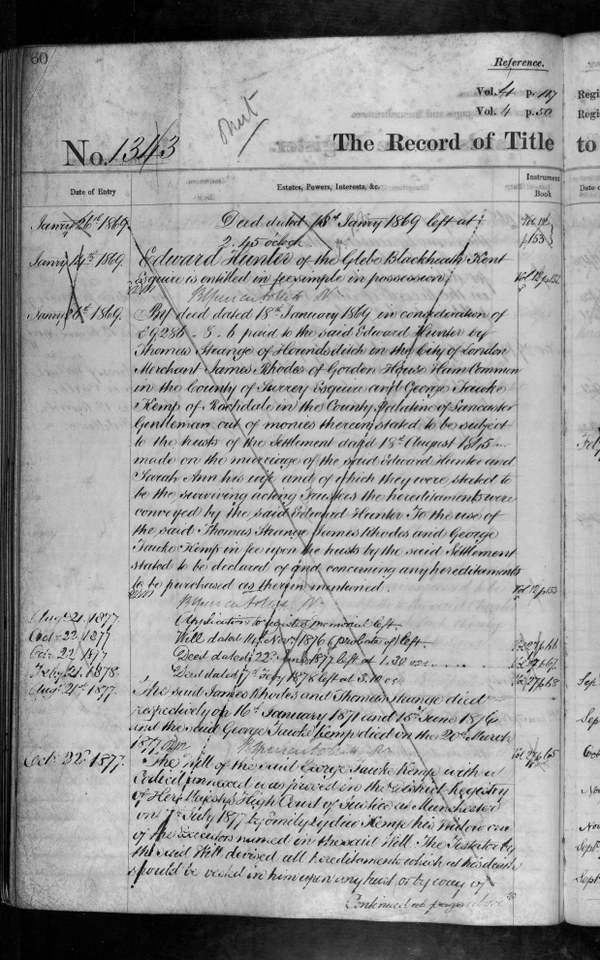 60
Reference.
Vol. 4 p. 117
Vol. 4 p. 50
No. 1343
The Record of Title
to
Regi
Regi
Date of Entry
Estates, Powers, Interests, &c.
Instrument
Book
Date o
Janry 26th 1869.
Deed dated 18th Janry 1869 left at
2.45 o'clock
p 153
Janry 1869.
Edward Hunter of the Glebe Blackheath Kent
Esquire is entitled in fee simple in possession
Janry 1869.
By deed dated 18th January 1869 in consideration of
£9286. 8. 6 paid to the said Edward Hunter by
Thomas Strange of Houndsditch in the City of London
Merchant James Rhodes of Gordon House Ham Common
in the County of Surrey Esquire and George Tawke
Kemp of Rochdale in the County Palatine of Lancaster
Gentleman out of monies therein stated to be subject
to the trusts of the Settlement dated 18th August 1845
made on the marriage of the said Edward Hunter and
Sarah Ann his wife and of which they were stated to
be the surviving acting Trustees the hereditaments were
conveyed by the said Edward Hunter To the use of
the said Thomas Strange James Rhodes and George
Tawke Kemp in fee upon the trusts by the said Settlement
stated to be declared of and concerning any hereditaments
to be purchased as therein mentioned.
Vol 12 p 153
Augt 21. 1877.
Application to register memorial left.
Oct 22. 1877
Will dated 14 Novr 1876 (probate of) left.
Oct 22 1877
Deed dated 22d 1877 left at 1.30
Feby 21. 1878.
Deed dated 7th Feby 1878 left at 3.10
Augt 21st 1877.
The said James Rhodes and Thomas Strange died
respectively on 16th January 1871 and 16th June 1876
and the said George Tawke Kemp died on the 20th March
1877
Octr 22d 1877.
The Will of the said George Tawke Kemp with a
Codicil annexed was proved in the District Registry
of Her Majesty's High Court of Justice at Manchester
on 7th July 1877 by Emily Lydia Kemp his widow one
of the executors named in the said Will. The Testator by
the said Will devised all hereditaments which at his death
should be vested in him upon any trust or by way of
Continued